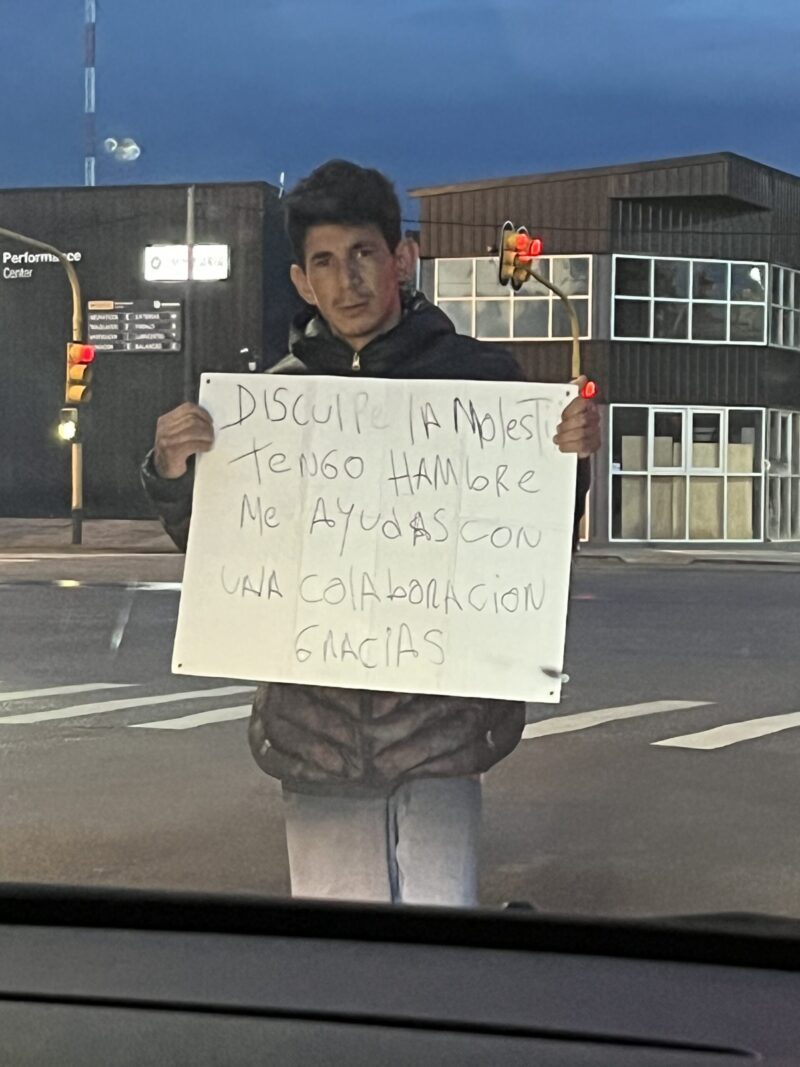 Performance
Center
DISCULPE LA MOLESTI
TENGO HAMBRE
ME AYUDAS CON
UNA COLABORACION
GRACIAS